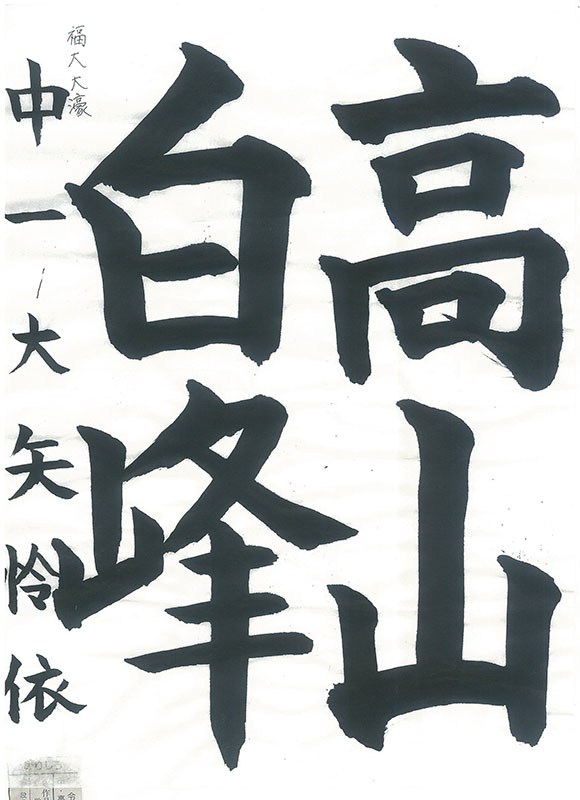 高山
白峰
福大大濠
中一 大矢怜依